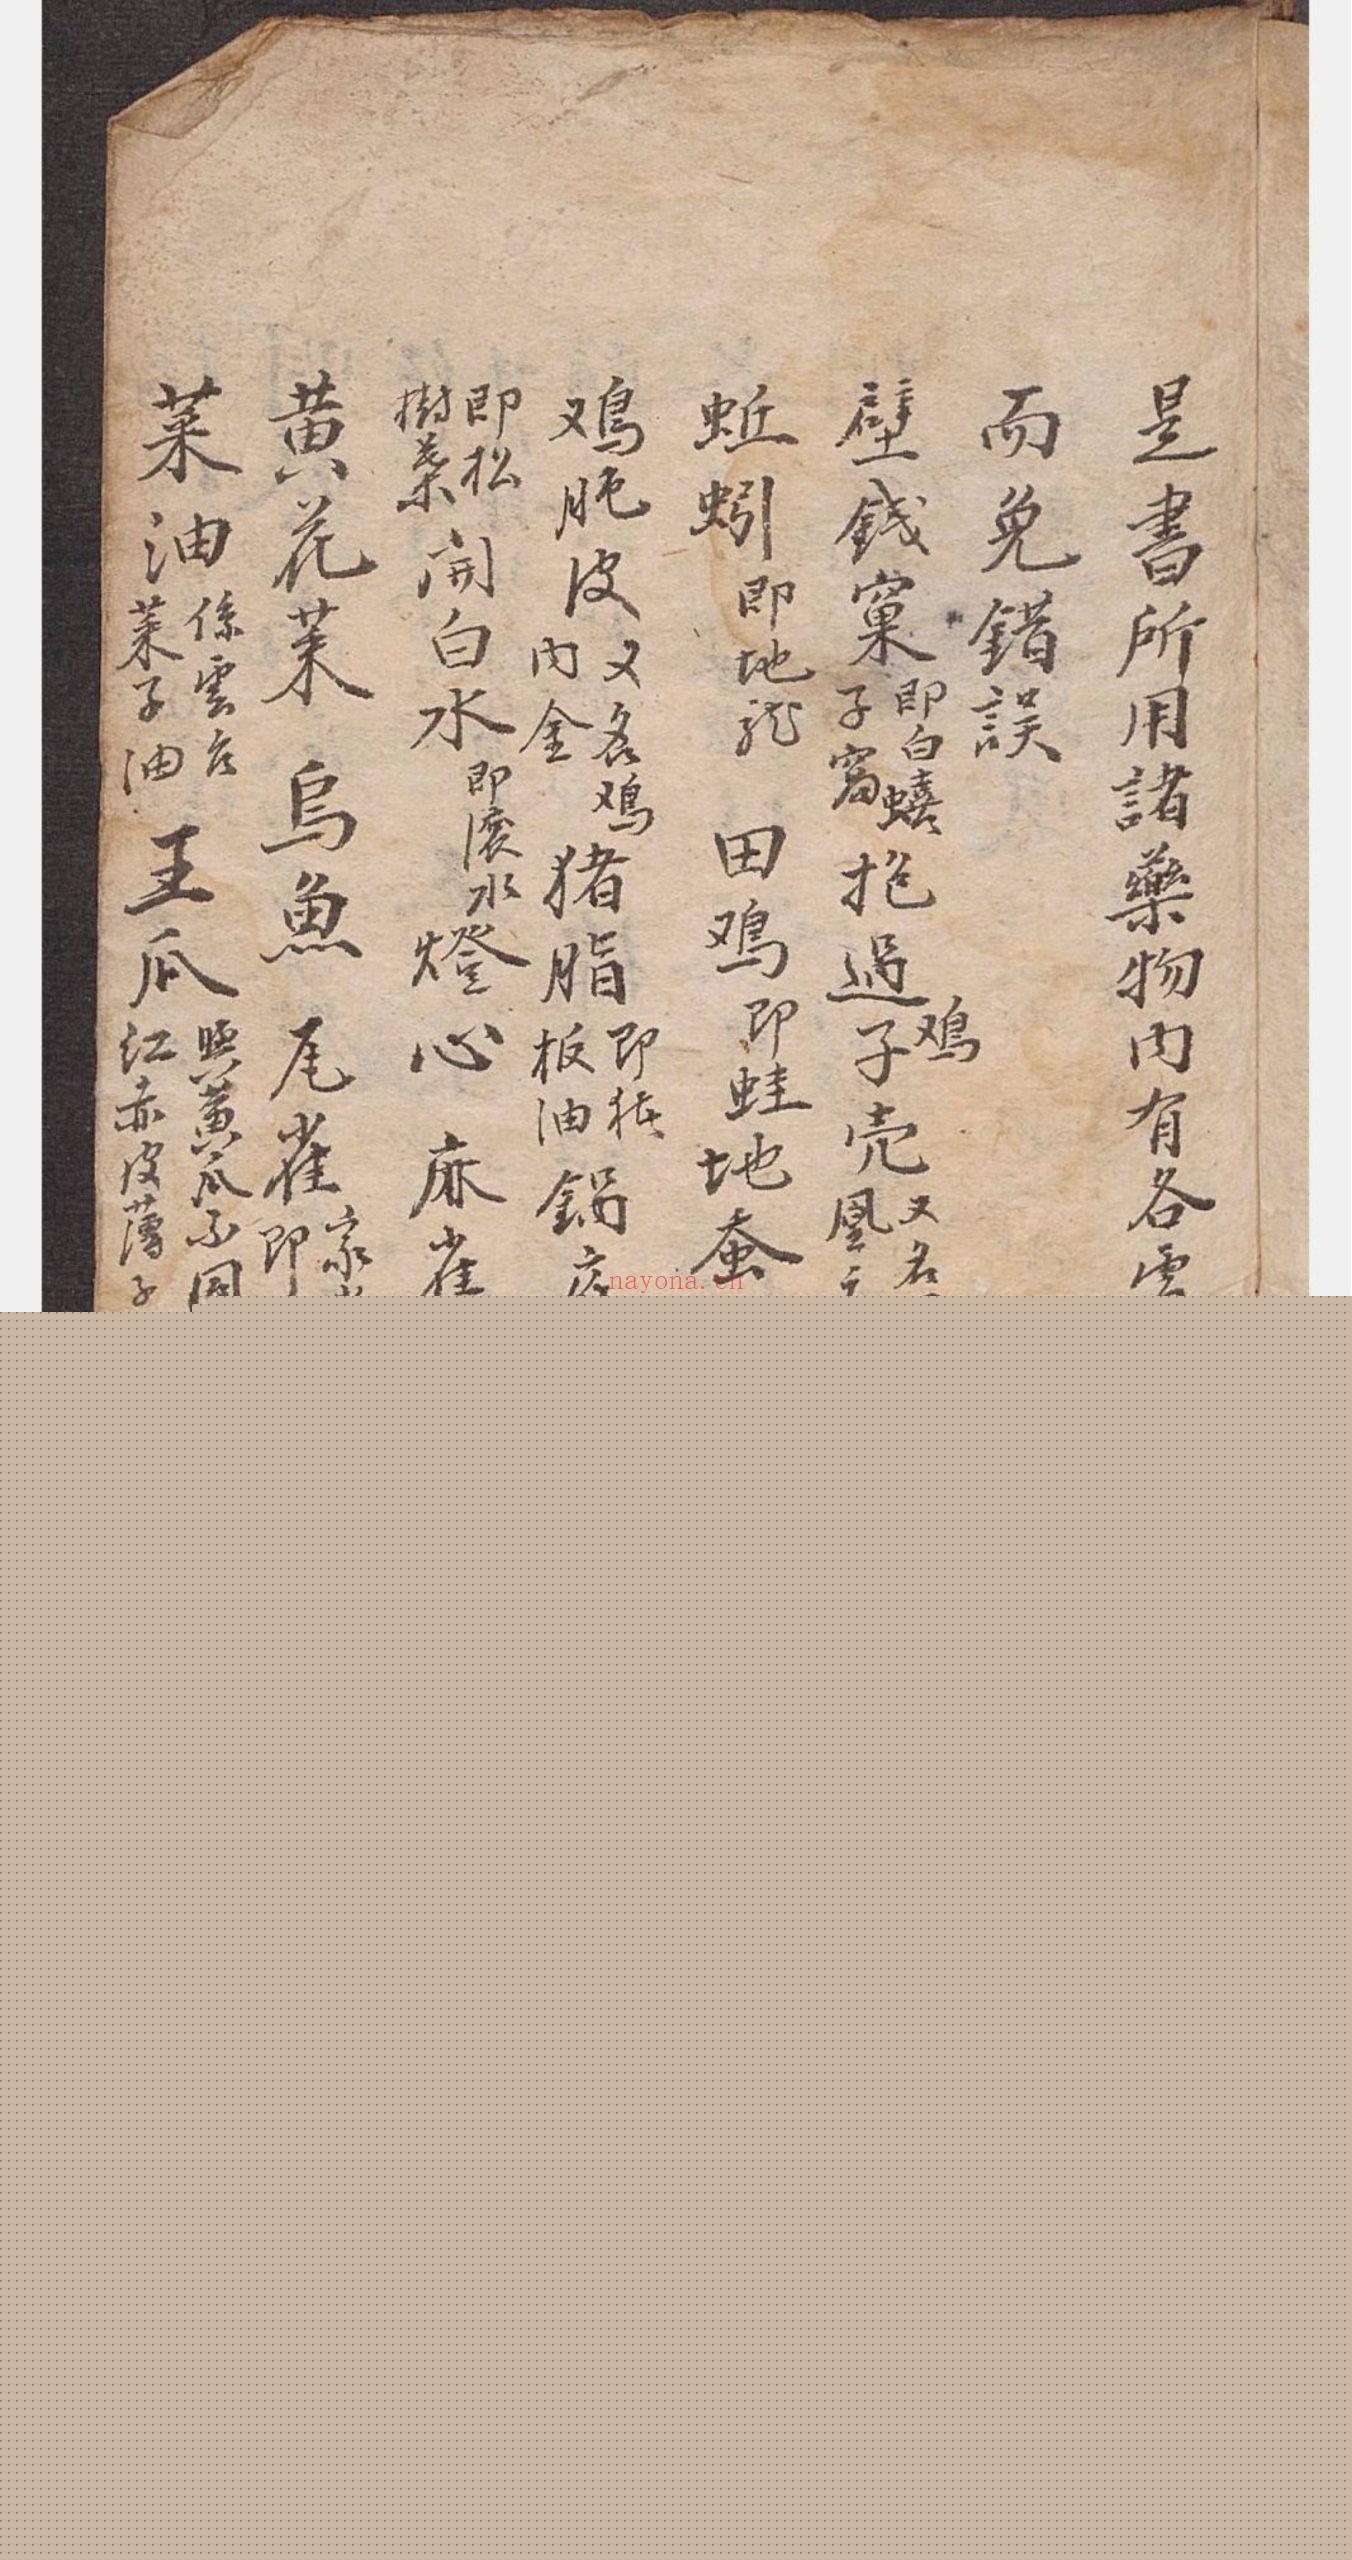 是書所用諸藥物內有各雲
而免錯誤
壁錢窠即白蟢子窩抱過鸡子壳又名凰
蚯蚓即地龍 田鸡即蛙地蚕
鸡肫皮又名鸡內金猪脂即猪板油鍋
即松樹葉開白水即滾水燈心 麻雀
黄花菜 烏魚 尾雀即家
菜油係雲名菜子油 王瓜與黄瓜不同江赤皮薄子
nayona.cn